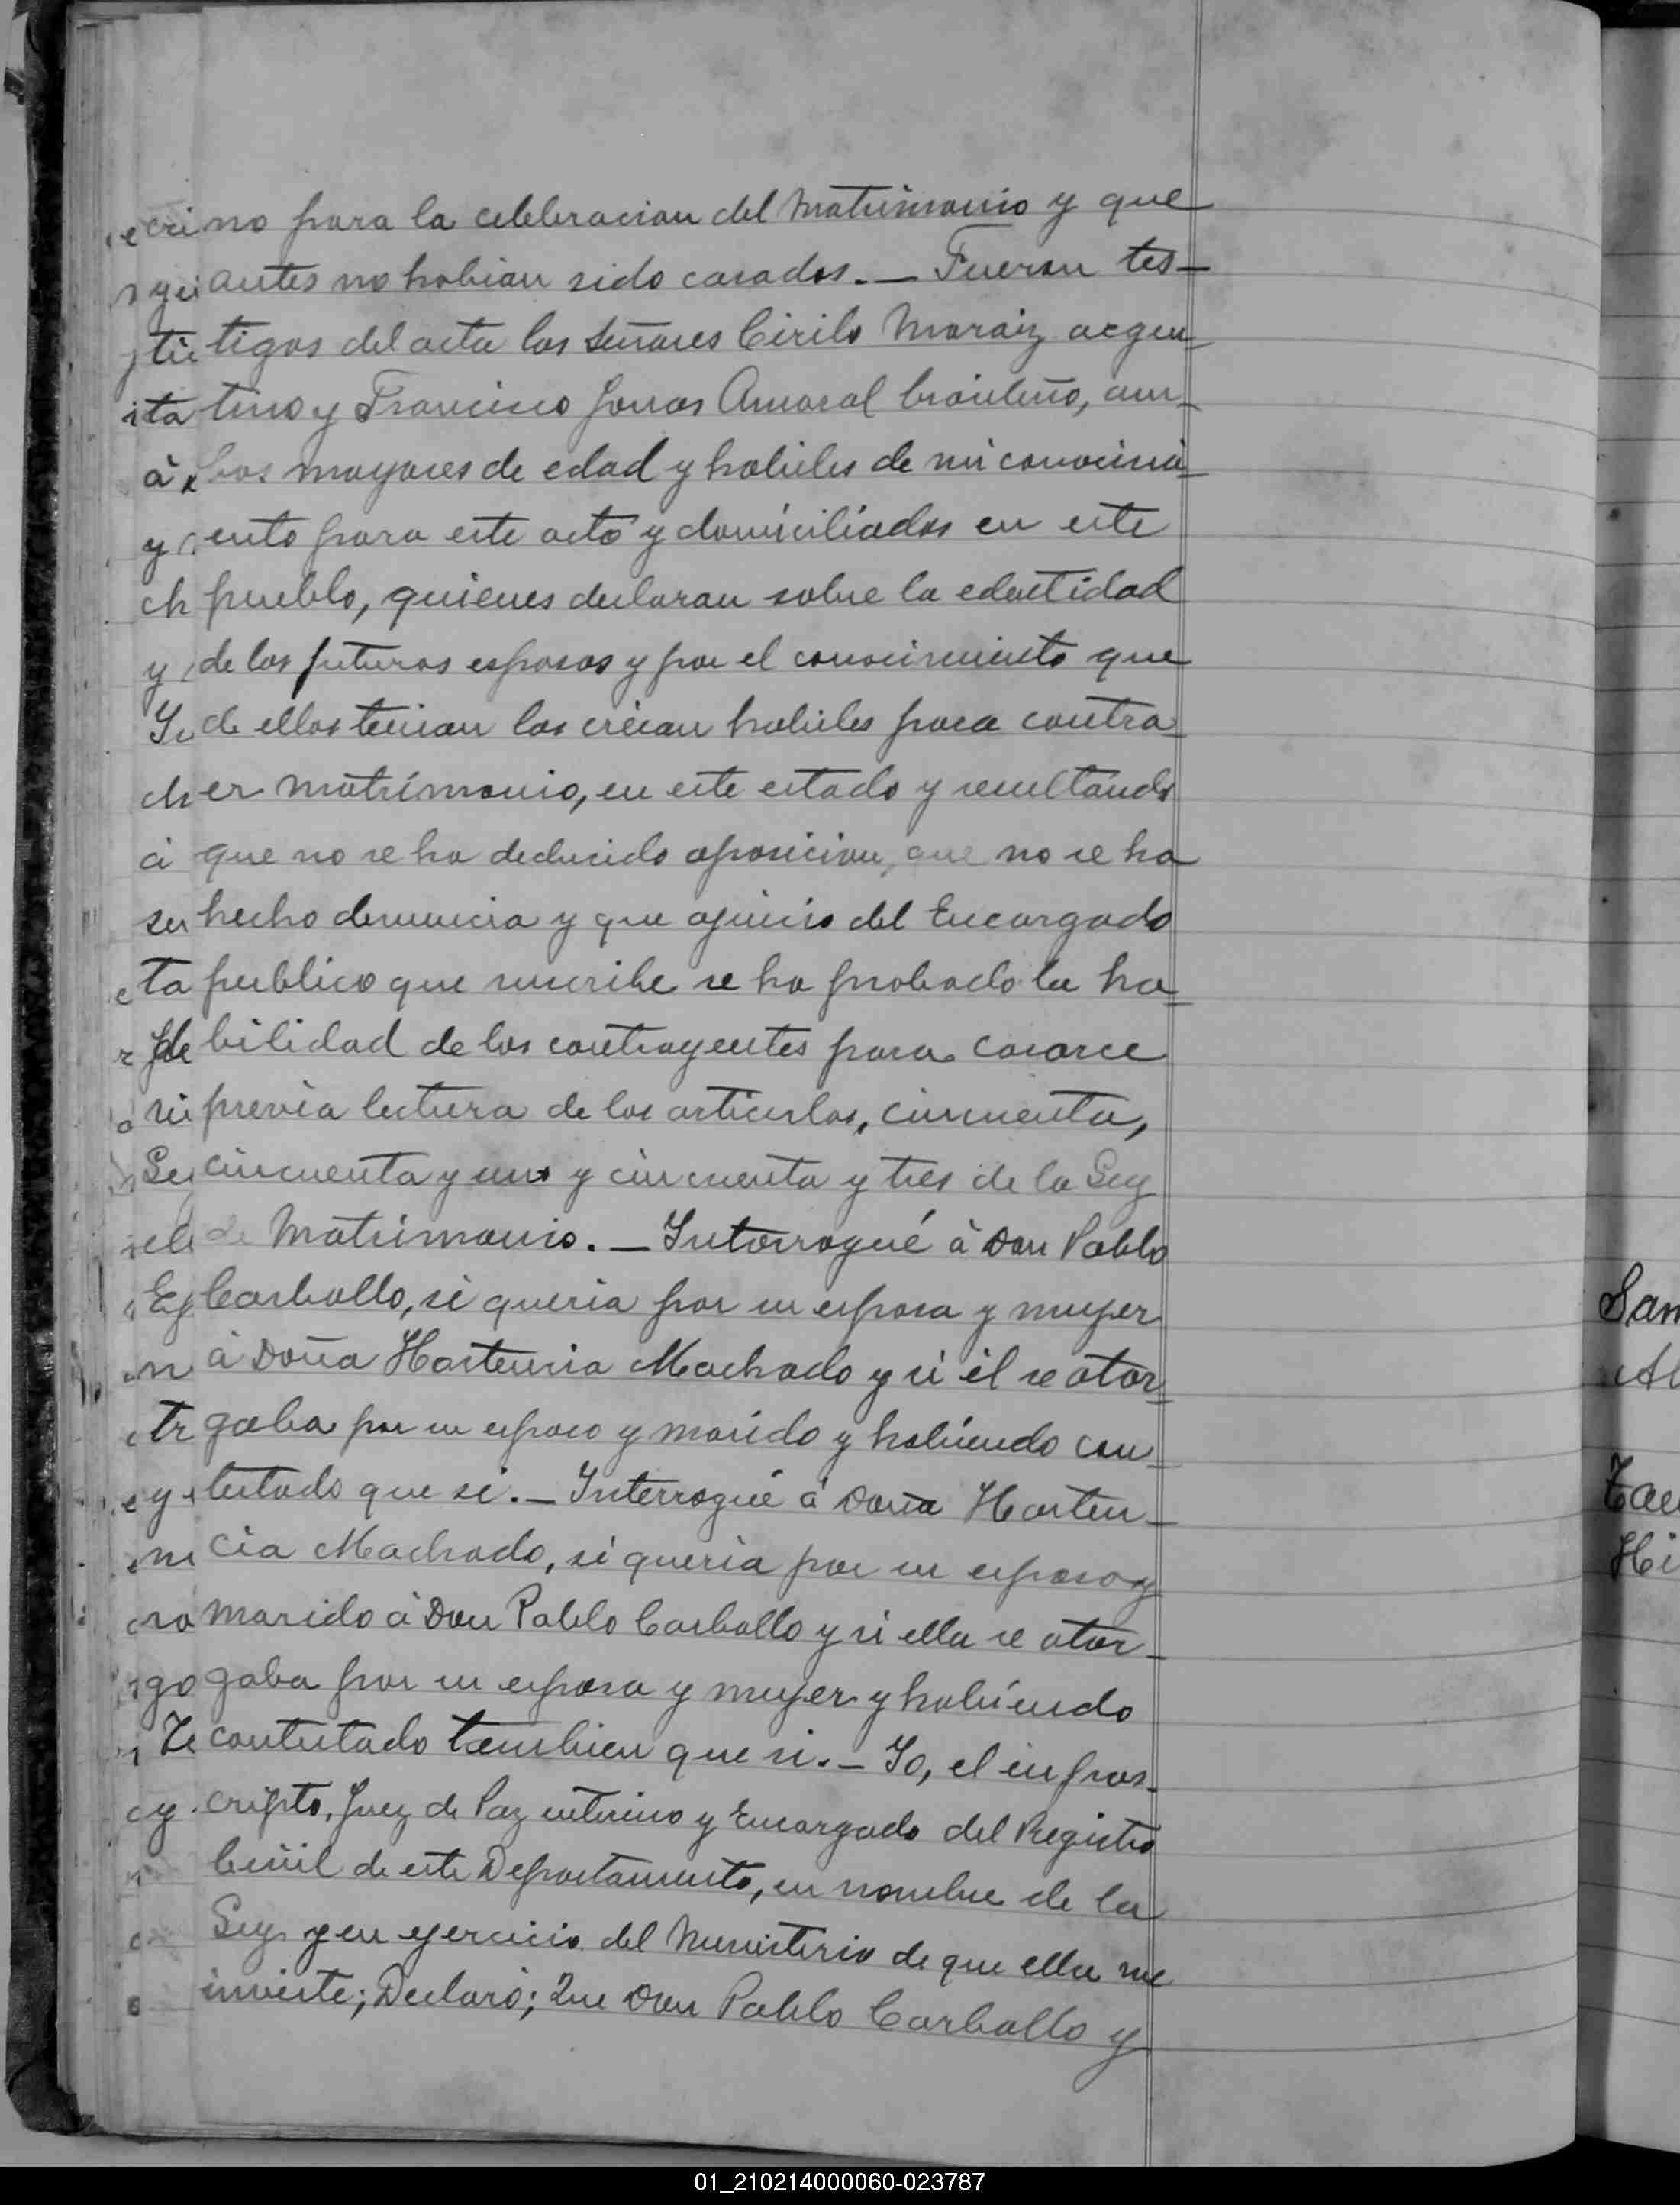 no para la celebracion del Matrimonio y que
antes no habian sido casados. — Fueron tes-
tigos del acta los Señores Cirilo Moraiz argen-
tino y Francisco Amaral brasileño, am-
bos mayores de edad y habiles de mi conocimi-
ento para este acto y domiciliados en este
pueblo, quienes declaran sobre la edentidad
de los futuros esposos y por el conocimiento que
de ellos tenian los creian habiles para contra
er matrimonio, en este estado y resultando
que no se ha deducido oposicion, que no se ha
hecho denuncia y que ajuicio del Encargado
publico que suscribe se ha probado la ha-
bilidad de los contrayentes para casarce
previa lectura de los articulos, cincuenta,
cincuenta y uno y cincuenta y tres de la Ley
de Matrimonio. — Intorrogué à Don Pablo
Carballo, si queria por su esposa y mujer
à Doña Hortensia Machado y si él se otor-
gaba por su esposo y marido y habiendo con-
testado que si. — Interrogué á Doña Horten-
cia Machado, si queria por su esposo y
marido à Don Pablo Carballo y si ella se otor-
gaba por su esposa y mujer y habiendo
contestado tambien que si. — Yo, el infras-
cripto, Juez de Paz interino y Encargado del Registro
Cívil de este Departamento, en nombre de la
Ley y en ejercicio del Ministerio de que ella me
inviste; Declaro; Que Don Pablo Carballo y
San
Hi
01_210214000060-023787